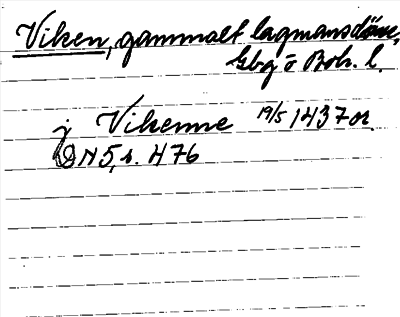 Viken, gammalt lagmansdöme,
Gbg o Boh. l.
j Vikenne 19/5 1437 or.
DN 5, s. 476